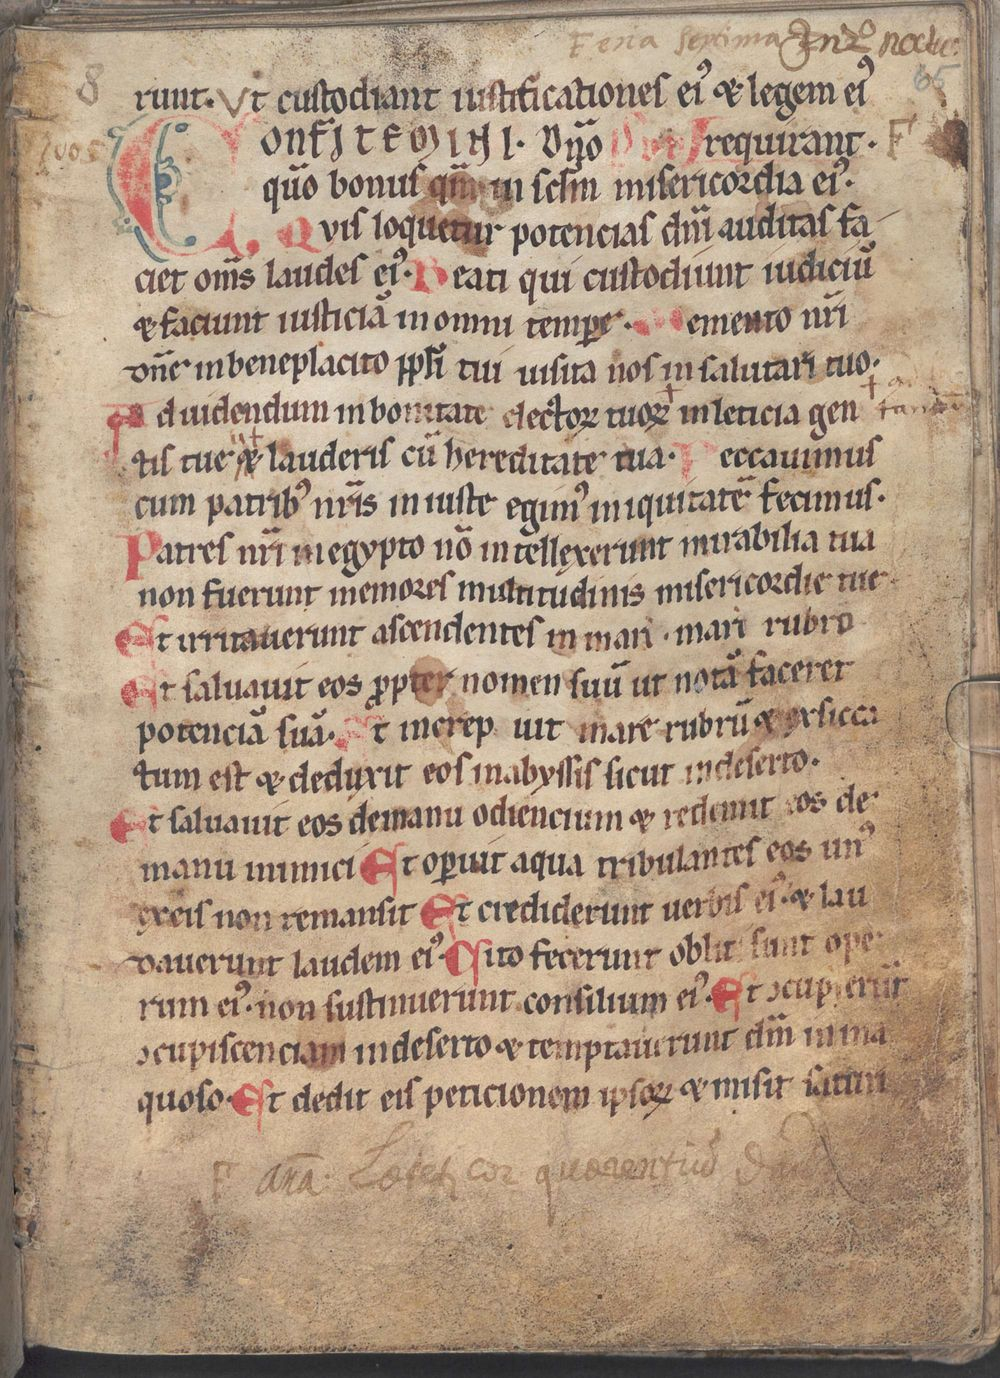 Feria Septima In 2º noctur.
8 65
runt. Vt custodiant iustificationes ei᾽ & legem ei᾽
CONFITEMINI. Dño requirant. F
qm̄o bonus qm̄ in sclm̄ misericordia ei᾽.
Quis loquetur potencias dm̄i auditas fa
ciet om̄s laudes ei᾽. Beati qui custodiunt iudiciū
& faciunt iusticiā in omni tempe. Memento nr̄i
dn̄e in beneplacito ppl̄i tui uisita nos in salutari tuo.
Ad uidendum in bonitate electoꝝ tuoꝝ in leticia gen
tis tue & lauderis cū hereditate tua. Peccauimus
cum patrib᾽ nr̄is in iuste egim᾽ iniquitatē fecimus.
Patres nr̄i in egypto nō intellexerunt mirabilia tua
non fuerunt memores multitudinis misericordie tue
Et irritauerunt ascendentes in mari. mari rubro
Et saluauit eos ꝓpter nomen suū ut notā faceret
potenciā suā. Et increp uit mare rubrū & exsicca
tum est & deduxit eos in abyssis sicut in deserto.
Et saluauit eos de manu odiencium & redemit eos de
manu inimici Et oꝑuit aqua tribulantes eos un᾽
ex eis non remansit Et crediderunt uerbis ei᾽. & lau
dauerunt laudem ei᾽. Cito fecerunt obliti sunt ope
rum ei᾽. non sustinuerunt consilium ei᾽. Et ɔcupierūt
ɔcupiscenciam in deserto & temptauerunt dm̄ in ina
quoso. Et dedit eis peticionem ipsoꝝ & misit saturi
F an̄a. Letet᾽ cor quaerentiū